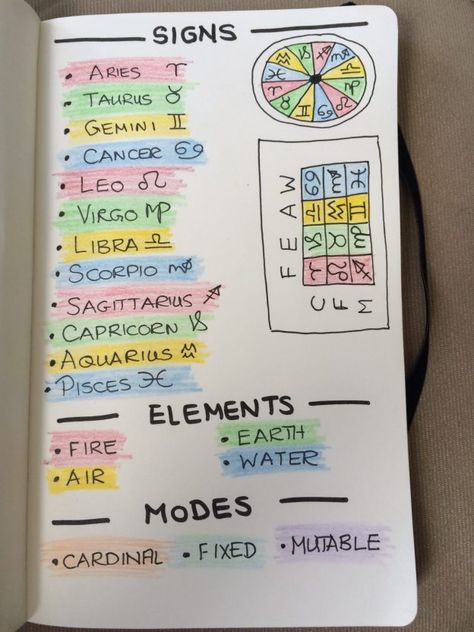 SIGNS
• ARIES ♈
• TAURUS ♉
• GEMINI ♊
• CANCER ♋
• LEO ♌
• VIRGO ♍
• LIBRA ♎
• SCORPIO ♏
• SAGITTARIUS ♐
• CAPRICORN ♑
• AQUARIUS ♒
• PISCES ♓
F E A W
C ♈ ♑ ♎ ♋
F ♌ ♉ ♒ ♏
M ♐ ♍ ♊ ♓
ELEMENTS
• FIRE
• AIR
• EARTH
• WATER
MODES
• CARDINAL • FIXED • MUTABLE